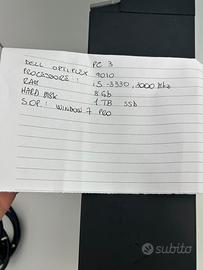 PC 3
DELL OPTIPLEX 9010
PROCESSORE: i5-3330, 3000 Mhz
RAM 8 Gb
HARD DISK 1 TB SSD
S.OP.: WINDOW 7 PRO
subito